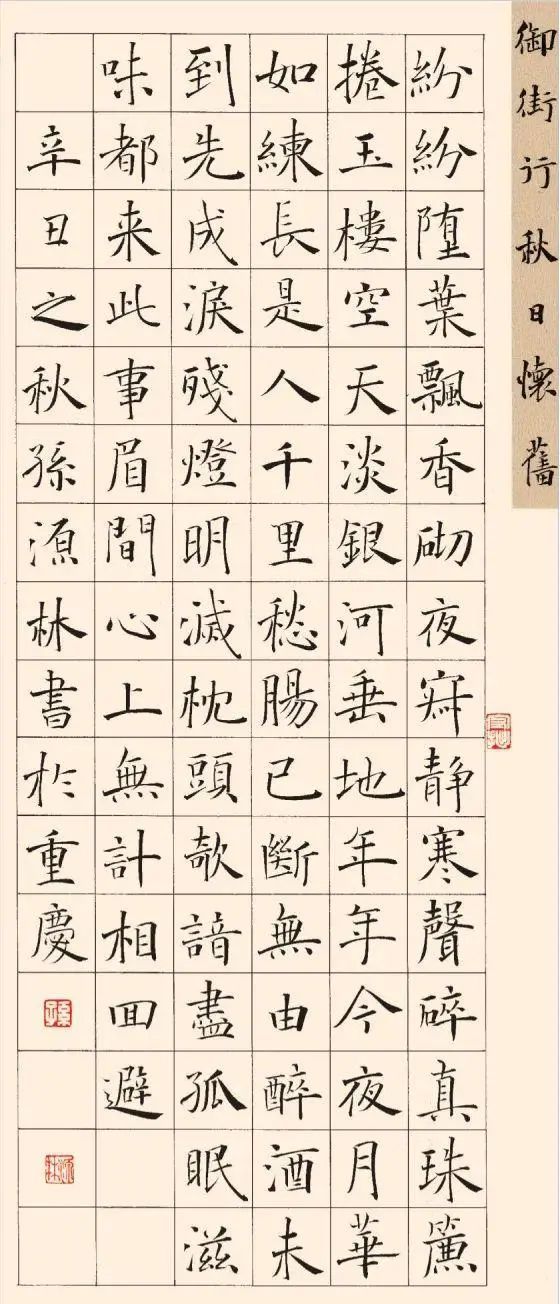 御街行秋日懷舊
紛紛堕葉飄香砌夜寂静寒聲碎真珠簾
捲玉樓空天淡銀河垂地年年今夜月華
如練長是人千里愁腸已斷無由醉酒未
到先成淚殘燈明滅枕頭欹諳盡孤眠滋
味都来此事眉間心上無計相回避
辛丑之秋孫源林書於重慶